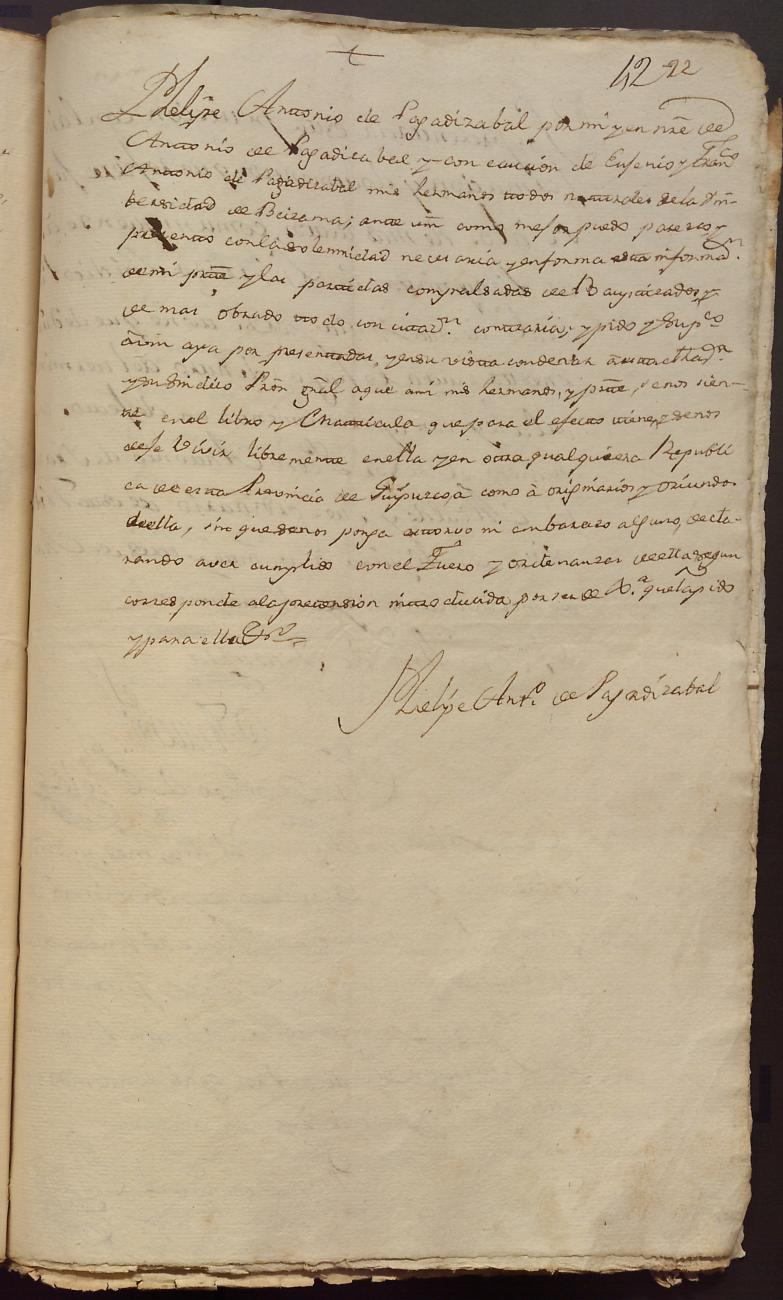 +
42 22
Phelipe Antonio de Pagadizabal por mi y en nre de
Antonio de Pagadizabal y con caucion de Eusenio y Franco
Antonio de Pagadizabal mis hermanos ttodos natturales de la Vni-
bersidad de Beizama; ante vm como mejor puedo parezco y
presentto con la solemnidad nezesaria y en forma estta informaon
de mi partte y las parttidas compulsadas de Bauptizados, y
de mas obrado ttodo con cittaon conttraria; y pido y supco
a vm aya por presenttadas, y en su vistta condenar a
y su Sindico Pror Gral a que a mi mis hermanos, y partte, se nos sien-
tte en el libro y Mattricula que para el efecto ttiene, y se nos
deje Vivir libremente en ella y en otra qualquiera Republi
ca de estta Provincia de Guipuzcoa como à originarios y oriundos
de ella, sin que se nos ponga esttorvo ni embarazo alguno, decla-
rando aver cumplido con el Fuero y ordenanzas de ella segun
corresponde a la prettension inttroducida por ser de Xa que la pido
y para ello &a
Phelipe Anto de Pagadizabal